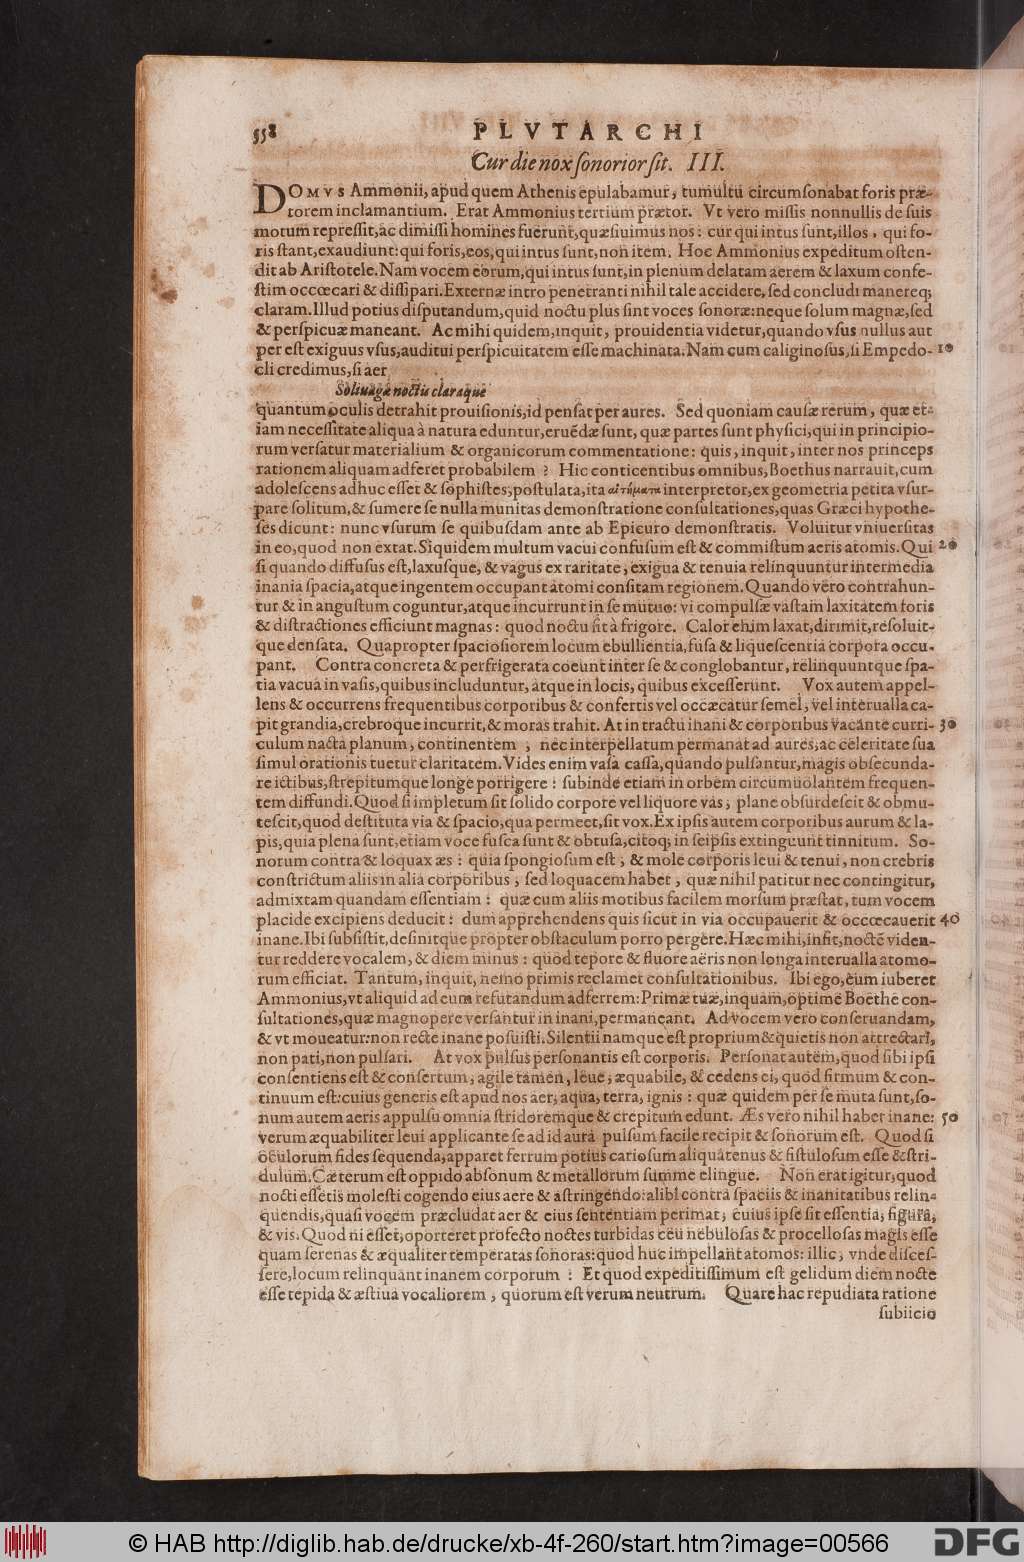 558
PLVTARCHI
Cur die nox sonorior sit. III.
DOMVS Ammonii, apud quem Athenis epulabamur, tumultu circumsonabat foris præ-
torem inclamantium. Erat Ammonius tertium prætor. Vt vero missis nonnullis de suis
motum repressit, ac dimissi homines fuerunt, quæsiuimus nos: cur qui intus sunt, illos, qui fo-
ris stant, exaudiunt: qui foris, eos, qui intus sunt, non item. Hoc Ammonius expeditum osten-
dit ab Aristotele. Nam vocem eorum, qui intus sunt, in plenum delatam aerem & laxum confe-
stim occœcari & dissipari. Externæ intro penetranti nihil tale accidere, sed concludi manereq;
claram. Illud potius disputandum, quid noctu plus sint voces sonoræ: neque solum magnæ, sed
& perspicuæ maneant. Ac mihi quidem, inquit, prouidentia videtur, quando vsus nullus aut
per est exiguus vsus, auditui perspicuitatem esse machinata. Nam cum caliginosus, si Empedo- 10
cli credimus, si aer
Soliuagæ noctu claraque
quantum oculis detrahit prouisionis, id pensat per aures. Sed quoniam causæ rerum, quæ et-
iam necessitate aliqua à natura eduntur, eruẽdæ sunt, quæ partes sunt physici, qui in principio-
rum versatur materialium & organicorum commentatione: quis, inquit, inter nos princeps
rationem aliquam adferet probabilem? Hic conticentibus omnibus, Boethus narrauit, cum
adolescens adhuc esset & sophistes, postulata, ita αἰτήματα interpretor, ex geometria petita vsur-
pare solitum, & sumere se nulla munitas demonstratione consultationes, quas Græci hypothe-
ses dicunt: nunc vsurum se quibusdam ante ab Epicuro demonstratis. Voluitur vniuersitas
in eo, quod non extat. Siquidem multum vacui confusum est & commistum aeris atomis. Qui 20
si quando diffusus est, laxusque, & vagus ex raritate, exigua & tenuia relinquuntur intermedia
inania spacia, atque ingentem occupant atomi consitam regionem. Quando vero contrahun-
tur & in angustum coguntur, atque incurrunt in se mutuo: vi compulsæ vastam laxitatem foris
& distractiones efficiunt magnas: quod noctu fit à frigore. Calor enim laxat, dirimit, resoluit-
que densata. Quapropter spaciosiorem locum ebullientia, fusa & liquescentia corpora occu-
pant. Contra concreta & perfrigerata coeunt inter se & conglobantur, relinquuntque spa-
tia vacua in vasis, quibus includuntur, atque in locis, quibus excesserunt. Vox autem appel-
lens & occurrens frequentibus corporibus & confertis vel occæcatur semel, vel interualla ca-
pit grandia, crebroque incurrit, & moras trahit. At in tractu inani & corporibus vacante curri- 30
culum nacta planum, continentem, nec interpellatum permanat ad aures, ac celeritate sua
simul orationis tuetur claritatem. Vides enim vasa cassa, quando pulsantur, magis obsecunda-
re ictibus, strepitumque longe porrigere: subinde etiam in orbem circumuolantem frequen-
tem diffundi. Quod si impletum sit solido corpore vel liquore vas, plane obsurdescit & obmu-
tescit, quod destituta via & spacio, qua permeet, sit vox. Ex ipsis autem corporibus aurum & la-
pis, quia plena sunt, etiam voce fusca sunt & obtusa, citoq; in seipsis extinguunt tinnitum. So-
norum contra & loquax æs: quia spongiosum est, & mole corporis leui & tenui, non crebris
constrictum aliis in alia corporibus, sed loquacem habet, quæ nihil patitur nec contingitur,
admixtam quandam essentiam: quæ cum aliis motibus facilem morsum præstat, tum vocem
placide excipiens deducit: dum apprehendens quis sicut in via occupauerit & occœcauerit 40
inane. Ibi subsistit, desinitque propter obstaculum porro pergere. Hæc mihi, infit, noctẽ viden-
tur reddere vocalem, & diem minus: quod tepore & fluore aëris non longa interualla atomo-
rum efficiat. Tantum, inquit, nemo primis reclamet consultationibus. Ibi ego, cum iuberet
Ammonius, vt aliquid ad eum refutandum adferrem: Primæ tuæ, inquam, optime Boethe con-
sultationes, quæ magnopere versantur in inani, permaneant. Ad vocem vero conseruandam,
& vt moueatur: non recte inane posuisti. Silentii namque est proprium & quietis non attrectari,
non pati, non pulsari. At vox pulsus personantis est corporis. Personat autem, quod sibi ipsi
consentiens est & consertum, agile tamen, leue, æquabile, & cedens ei, quod firmum & con-
tinuum est: cuius generis est apud nos aer, aqua, terra, ignis: quæ quidem per se muta sunt, so-
num autem aeris appulsu omnia stridoremque & crepitum edunt. Æs vero nihil habet inane: 50
verum æquabiliter leui applicante se ad id aura pulsum facile recipit & sonorum est. Quod si
oculorum fides sequenda, apparet ferrum potius cariosum aliquatenus & fistulosum esse & stri-
dulum. Cæterum est oppido absonum & metallorum summe elingue. Non erat igitur, quod
nocti essetis molesti cogendo eius aere & astringendo: alibi contra spaciis & inanitatibus relin-
quendis, quasi vocem præcludat aer & eius sententiam perimat, cuius ipse sit essentia, figura,
& vis. Quod ni esset, oporteret profecto noctes turbidas ceu nebulosas & procellosas magis esse
quam serenas & æqualiter temperatas sonoras: quod huc impellant atomos: illic, vnde disces-
sere, locum relinquant inanem corporum: Et quod expeditissimum est gelidum diem nocte
esse tepida & æstiua vocaliorem, quorum est verum neutrum. Quare hac repudiata ratione
subiicio
© HAB http://diglib.hab.de/drucke/xb-4f-260/start.htm?image=00566
DFG